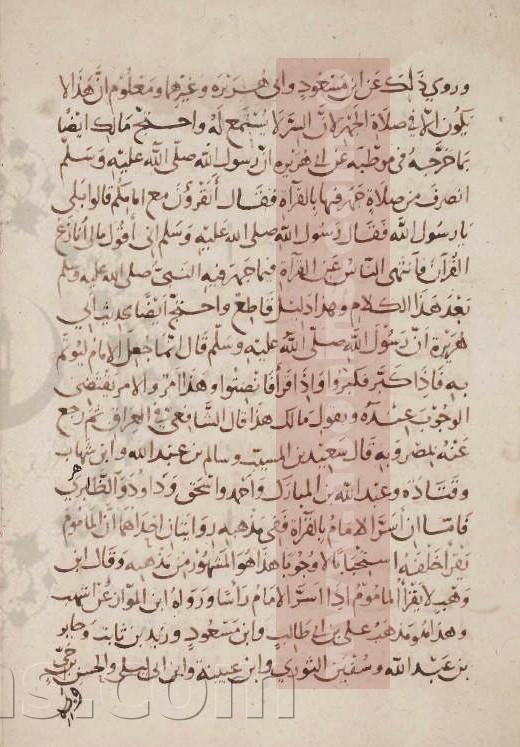 وروي ذلك عن ابن مسعود وابي هريرة وغيرهما ومعلوم ان هذا لا
يكون الا في صلاة الجهر لان السر لا يستمع له واحتج مالك ايضا
بما خرجه في موطئه عن ابي هريرة ان رسول الله صلى الله عليه وسلم
انصرف من صلاة جهر فيها بالقراة فقال أتقرؤن مع امامكم قالوا بلى
يا رسول الله فقال رسول الله صلى الله عليه وسلم اني أقول مالي أنازع
القرآن فانتهى الناس عن القراة فيما جهر فيه النبي صلى الله عليه وسلم
بعد هذا الكلام وهذا دليل قاطع واحتج أيضا بحديث ابي
هريرة ان رسول الله صلى الله عليه وسلم قال انما جعل الامام ليؤتم
به فاذا كبر فكبروا واذا قرأ فانصتوا وهذا امر والامر يقتضي
الوجوب عنده وبقول مالك هذا قال الشافعي في العراق ثم رجع
عنه بمصر وبه قال سعيد بن المسيب وسالم بن عبد الله وابن شهاب
وقتادة وعبد الله بن المبارك واحمد واسحق وداود الظاهري
فاما ان أسر الامام بالقراة ففي مذهبه روايتان احداهما أن الماموم
يقرأ خلفه استحبابا لا وجوبا هذا هو المشهور من مذهبه وقال ابن
وهب لا يقرأ الماموم اذا اسر الامام رأسا ورواه ابن المواز عن اشهب
وهذا مذهب علي بن ابي طالب وابن مسعود وزيد بن ثابت وجابر
بن عبد الله وسفين الثوري وابن عيينة وابن ابي ليلى والحسن بن حي
ns.com